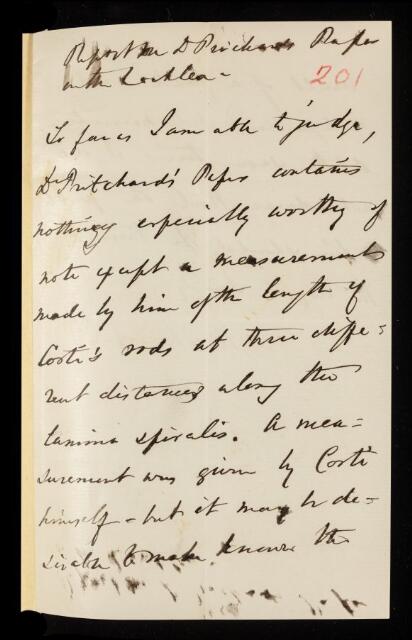 Report on Dr Prichard's Paper
on the Cochlea -
201
So far as I am able to judge,
Dr Pritchard's Paper contains
nothing especially worthy of
note except a measurements
made by him of the length of
Corti's rods at three diffe=
rent distances along the
lamina spiralis. A mea=
surement was given by Corti
himself - but it may be de=
sirable to make known the